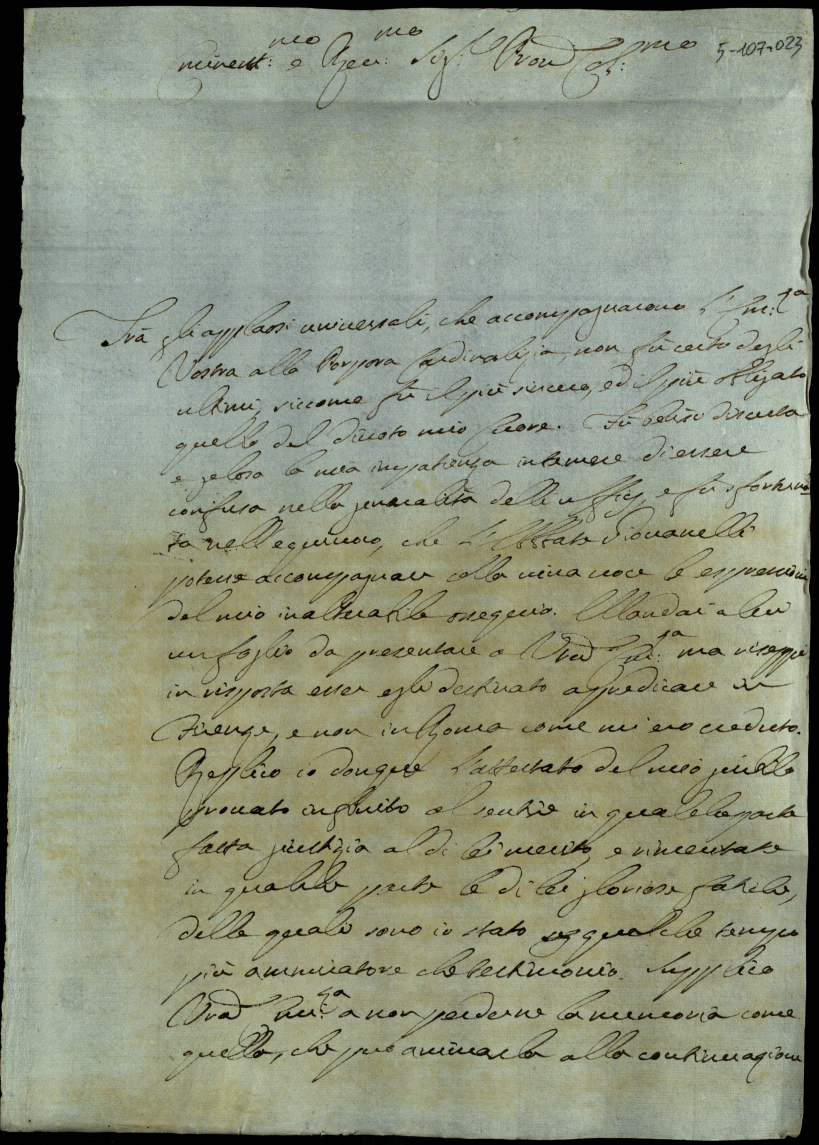 5-107-023
Eminent:mo e Rev:mo Sig.r Pron Col:mo
Frà gli applausi universali, che accompagnarono l'Em:za
Vostra alla Porpora Cardinalizia, non fù certo degli
ultimi, siccome fù il più sincero, ed il più obligato
quello del divoto mio Cuore. Fù bensì discreta
e gelosa la mia impatienza in temere di essere
confusa nella generalità delli uffizj, e fù sfortuna=
ta nell'equivoco, che l'Abbate Giovanelli
potesse accompagnare colla viva voce le espressioni
del mio inalterabile ossequio. Mandai a lui
un foglio da presentare a Vra Em:za ma riseppi
in risposta esser egli destinato a predicare in
Firenze, e non in Roma come mi ero creduto.
Replico io donque l'attestato del mio giubilo
provato infinito al sentire in qualche parte
fatta giustizia al di lei merito, e rimeritate
in qualche parte le di lei gloriose fatiche,
delle quali sono io stato qualche tempo
più ammiratore che testimonio. Supplico
Vra Em:za a non perderne la memoria come
quella, che può animarla alla continuazione